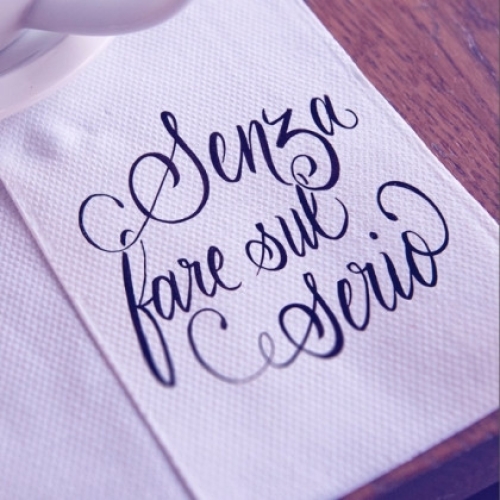 Senza
fare sul
serio